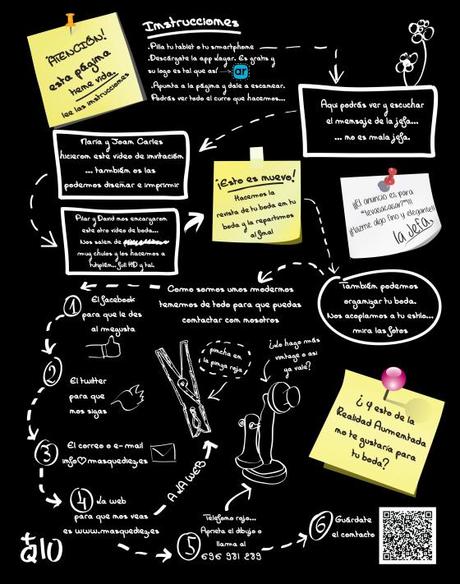 ¡ATENCIÓN!
esta página
tiene vida
lee las instrucciones
Instrucciones
.Pilla tu tablet o tu smartphone
.Descárgate la app Layar. Es gratis y
su logo es tal que así → ar
.Apunta a la página y dale a escanear.
.Podrás ver todo el curro que hacemos...
Aquí podrás ver y escuchar
el mensaje de la jefa...
... no es mala jefa.
María y Joam Carles
hicieron este vídeo de invitación
... también os las
podemos diseñar e imprimir
¡Esto es nuevo!
Hacemos la
revista de tu boda en tu
boda y la repartimos
al final
¡El anuncio es para
¡¡Hazme algo fino y elegante!!
La Jefa.
Pilar y David nos encargaron
este otro vídeo de boda...
Nos salen de
muy chulos y los hacemos a
full HD y tal.
Como somos unos modernos
tenemos de todo para que puedas
contactar com nosotros
También podemos
organizar tu boda.
Nos acoplamos a tu estilo...
mira las fotos
1 El facebook
para que le des
al megusta
pincha en
la pinza roja
¿Lo hago más
vintage o así
ya vale?
2 El twitter
para que
mos sigas
¿Y esto de la
Realidad Aumentada
mo te gustaría para
tu boda?
3 El correo o e-mail
info@masquediez.es
A LA WEB
4 La web
para que mos veas
es www.masquediez.es
5 Teléfono rojo...
Aprieta el dibujo o
llama al
696 981 289
6 Guárdate
el contacto
+Q10